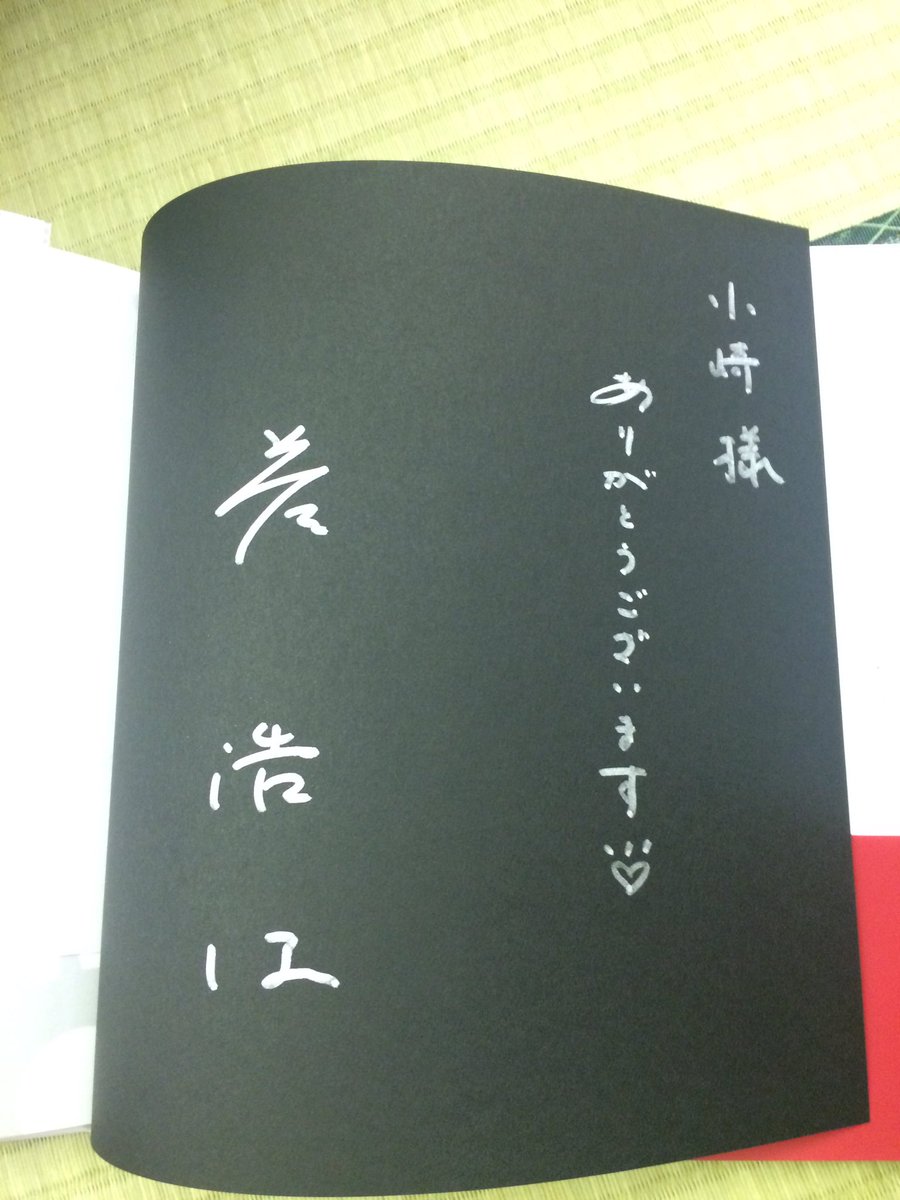 小崎様
ありがとうございます♡
菅浩江